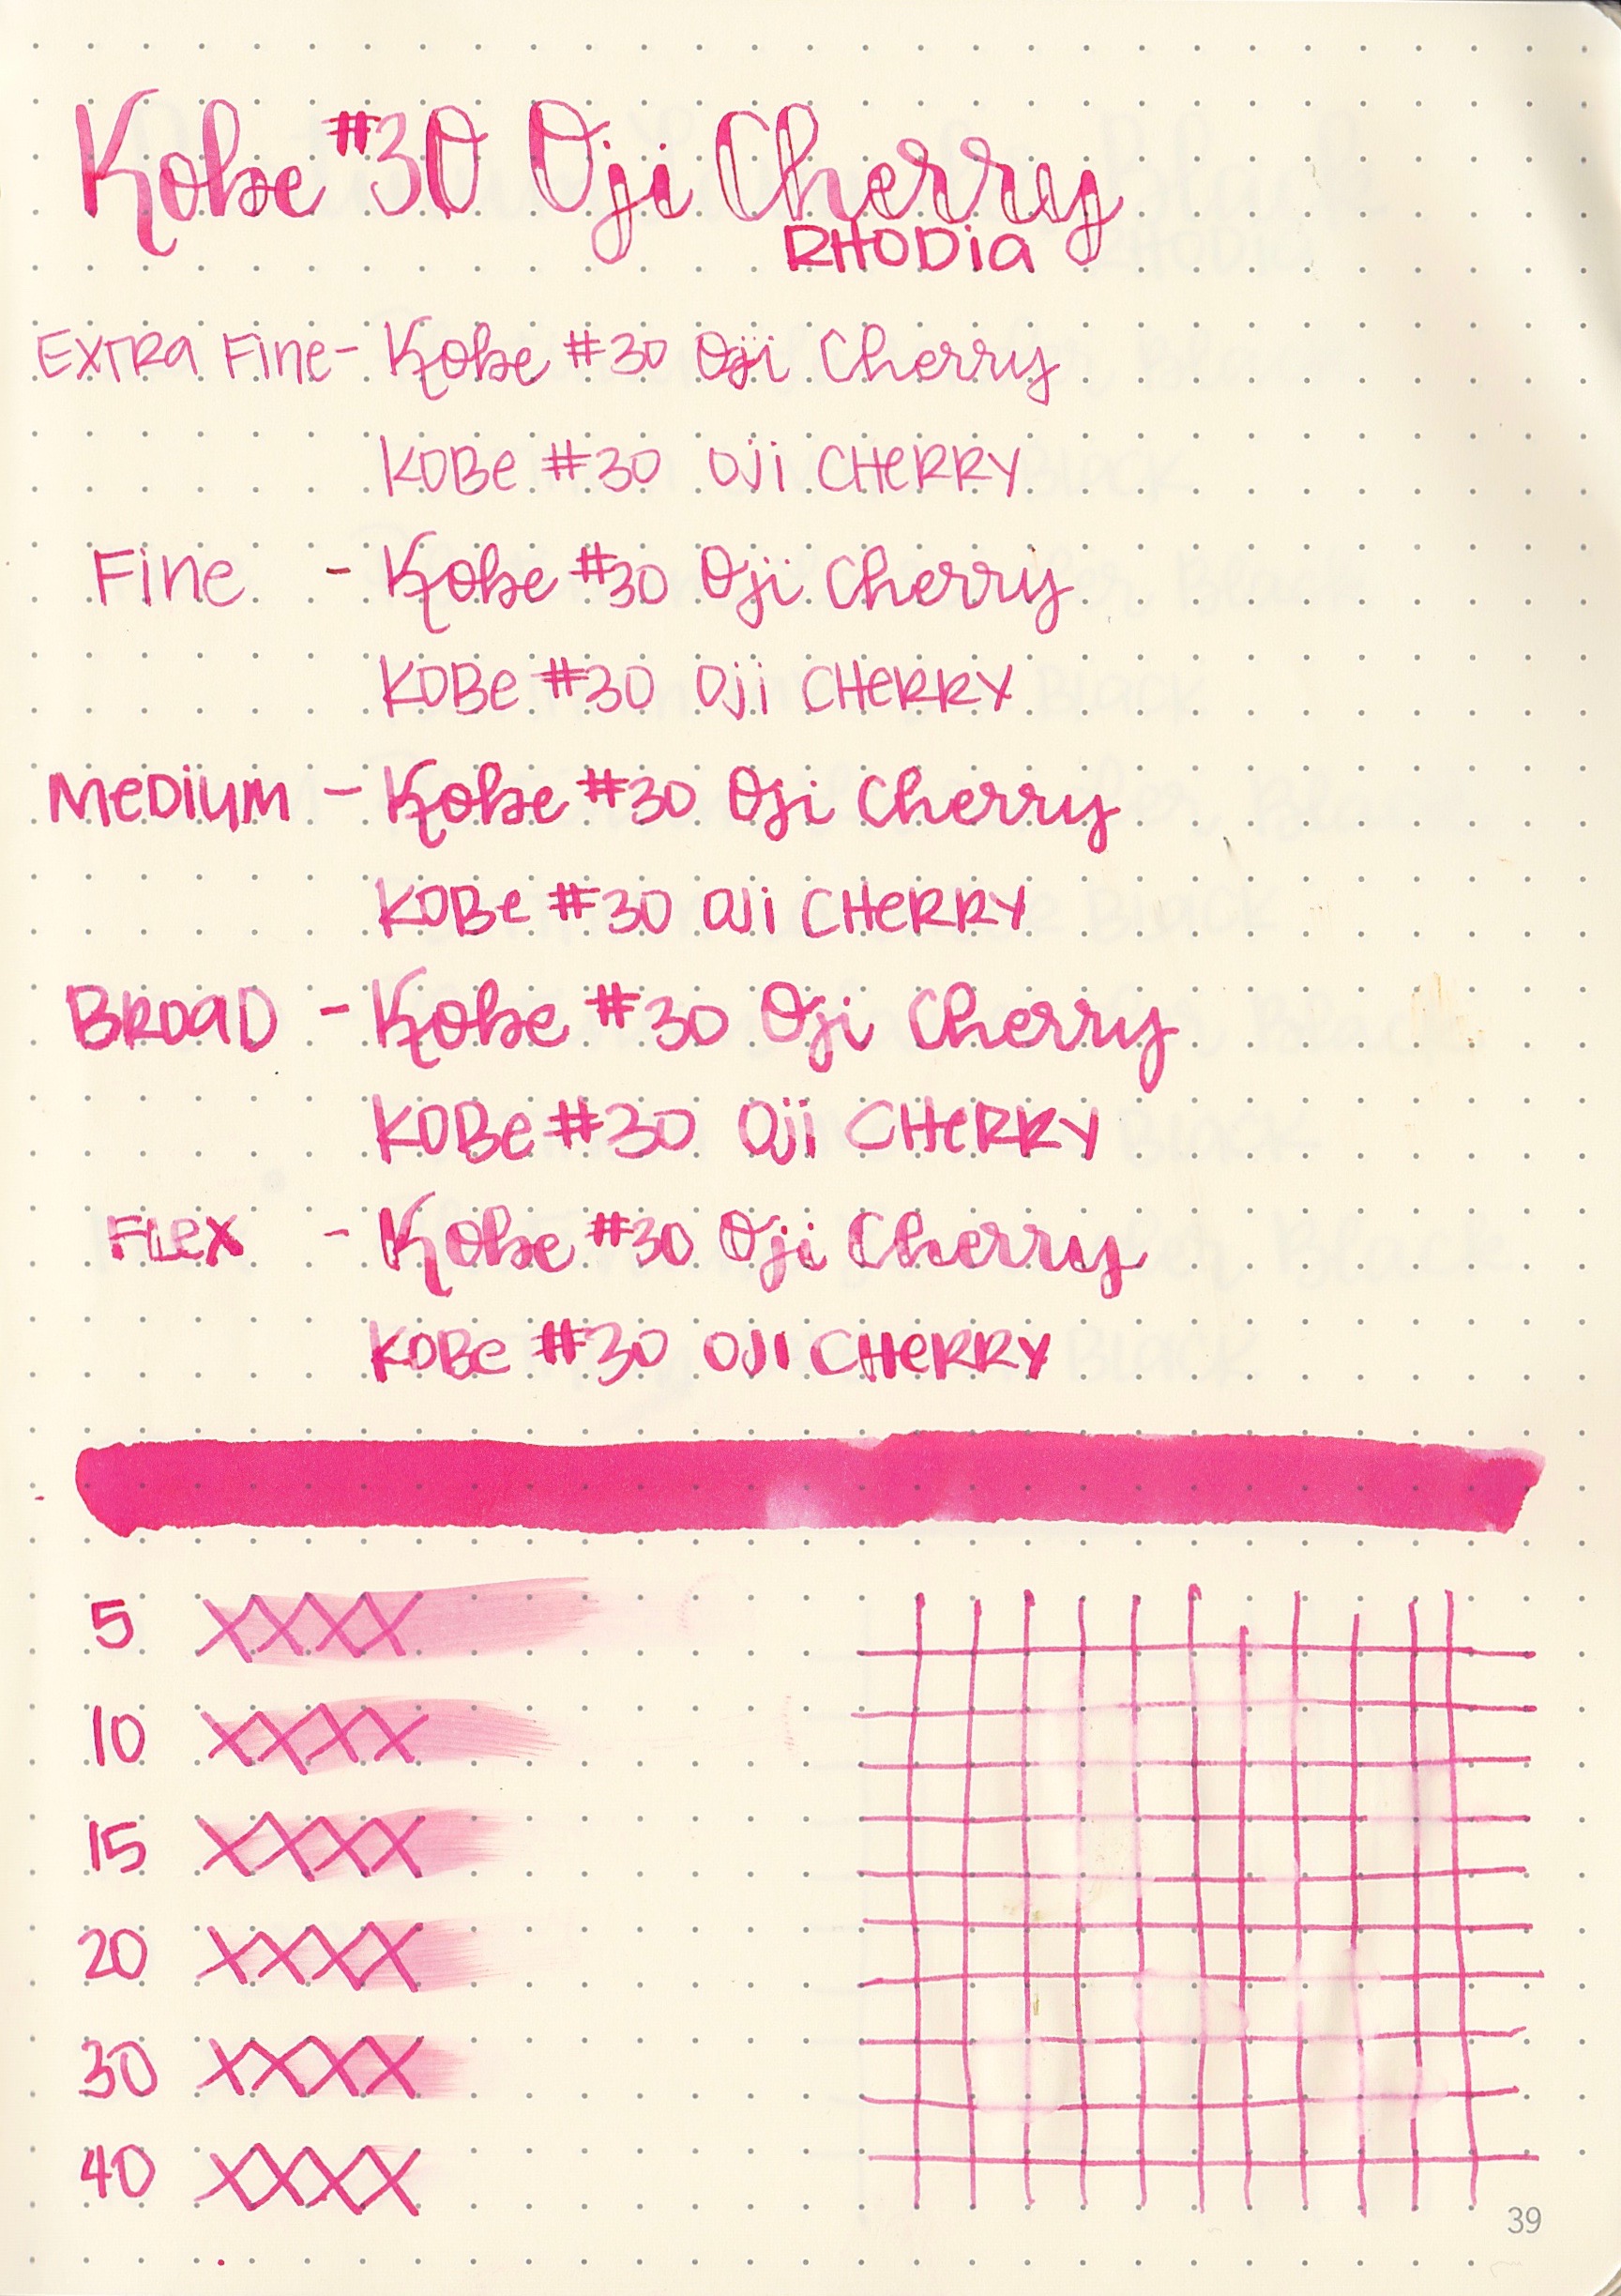 Kobe #30 Oji Cherry
RHODia
Extra Fine - Kobe #30 Oji Cherry
KOBe #30 OJi CHeRRY
Fine - Kobe #30 Oji Cherry
KOBe #30 OJi CHeRRY
MeDium - Kobe #30 Oji Cherry
KOBe #30 OJi CHeRRY
BRoaD - Kobe #30 Oji Cherry
KOBe #30 OJi CHeRRY
FLex - Kobe #30 Oji Cherry
KOBe #30 OJI CHeRRY
5 XXXX
10 XXXX
15 XXXX
20 XXXX
30 XXXX
40 XXXX
39